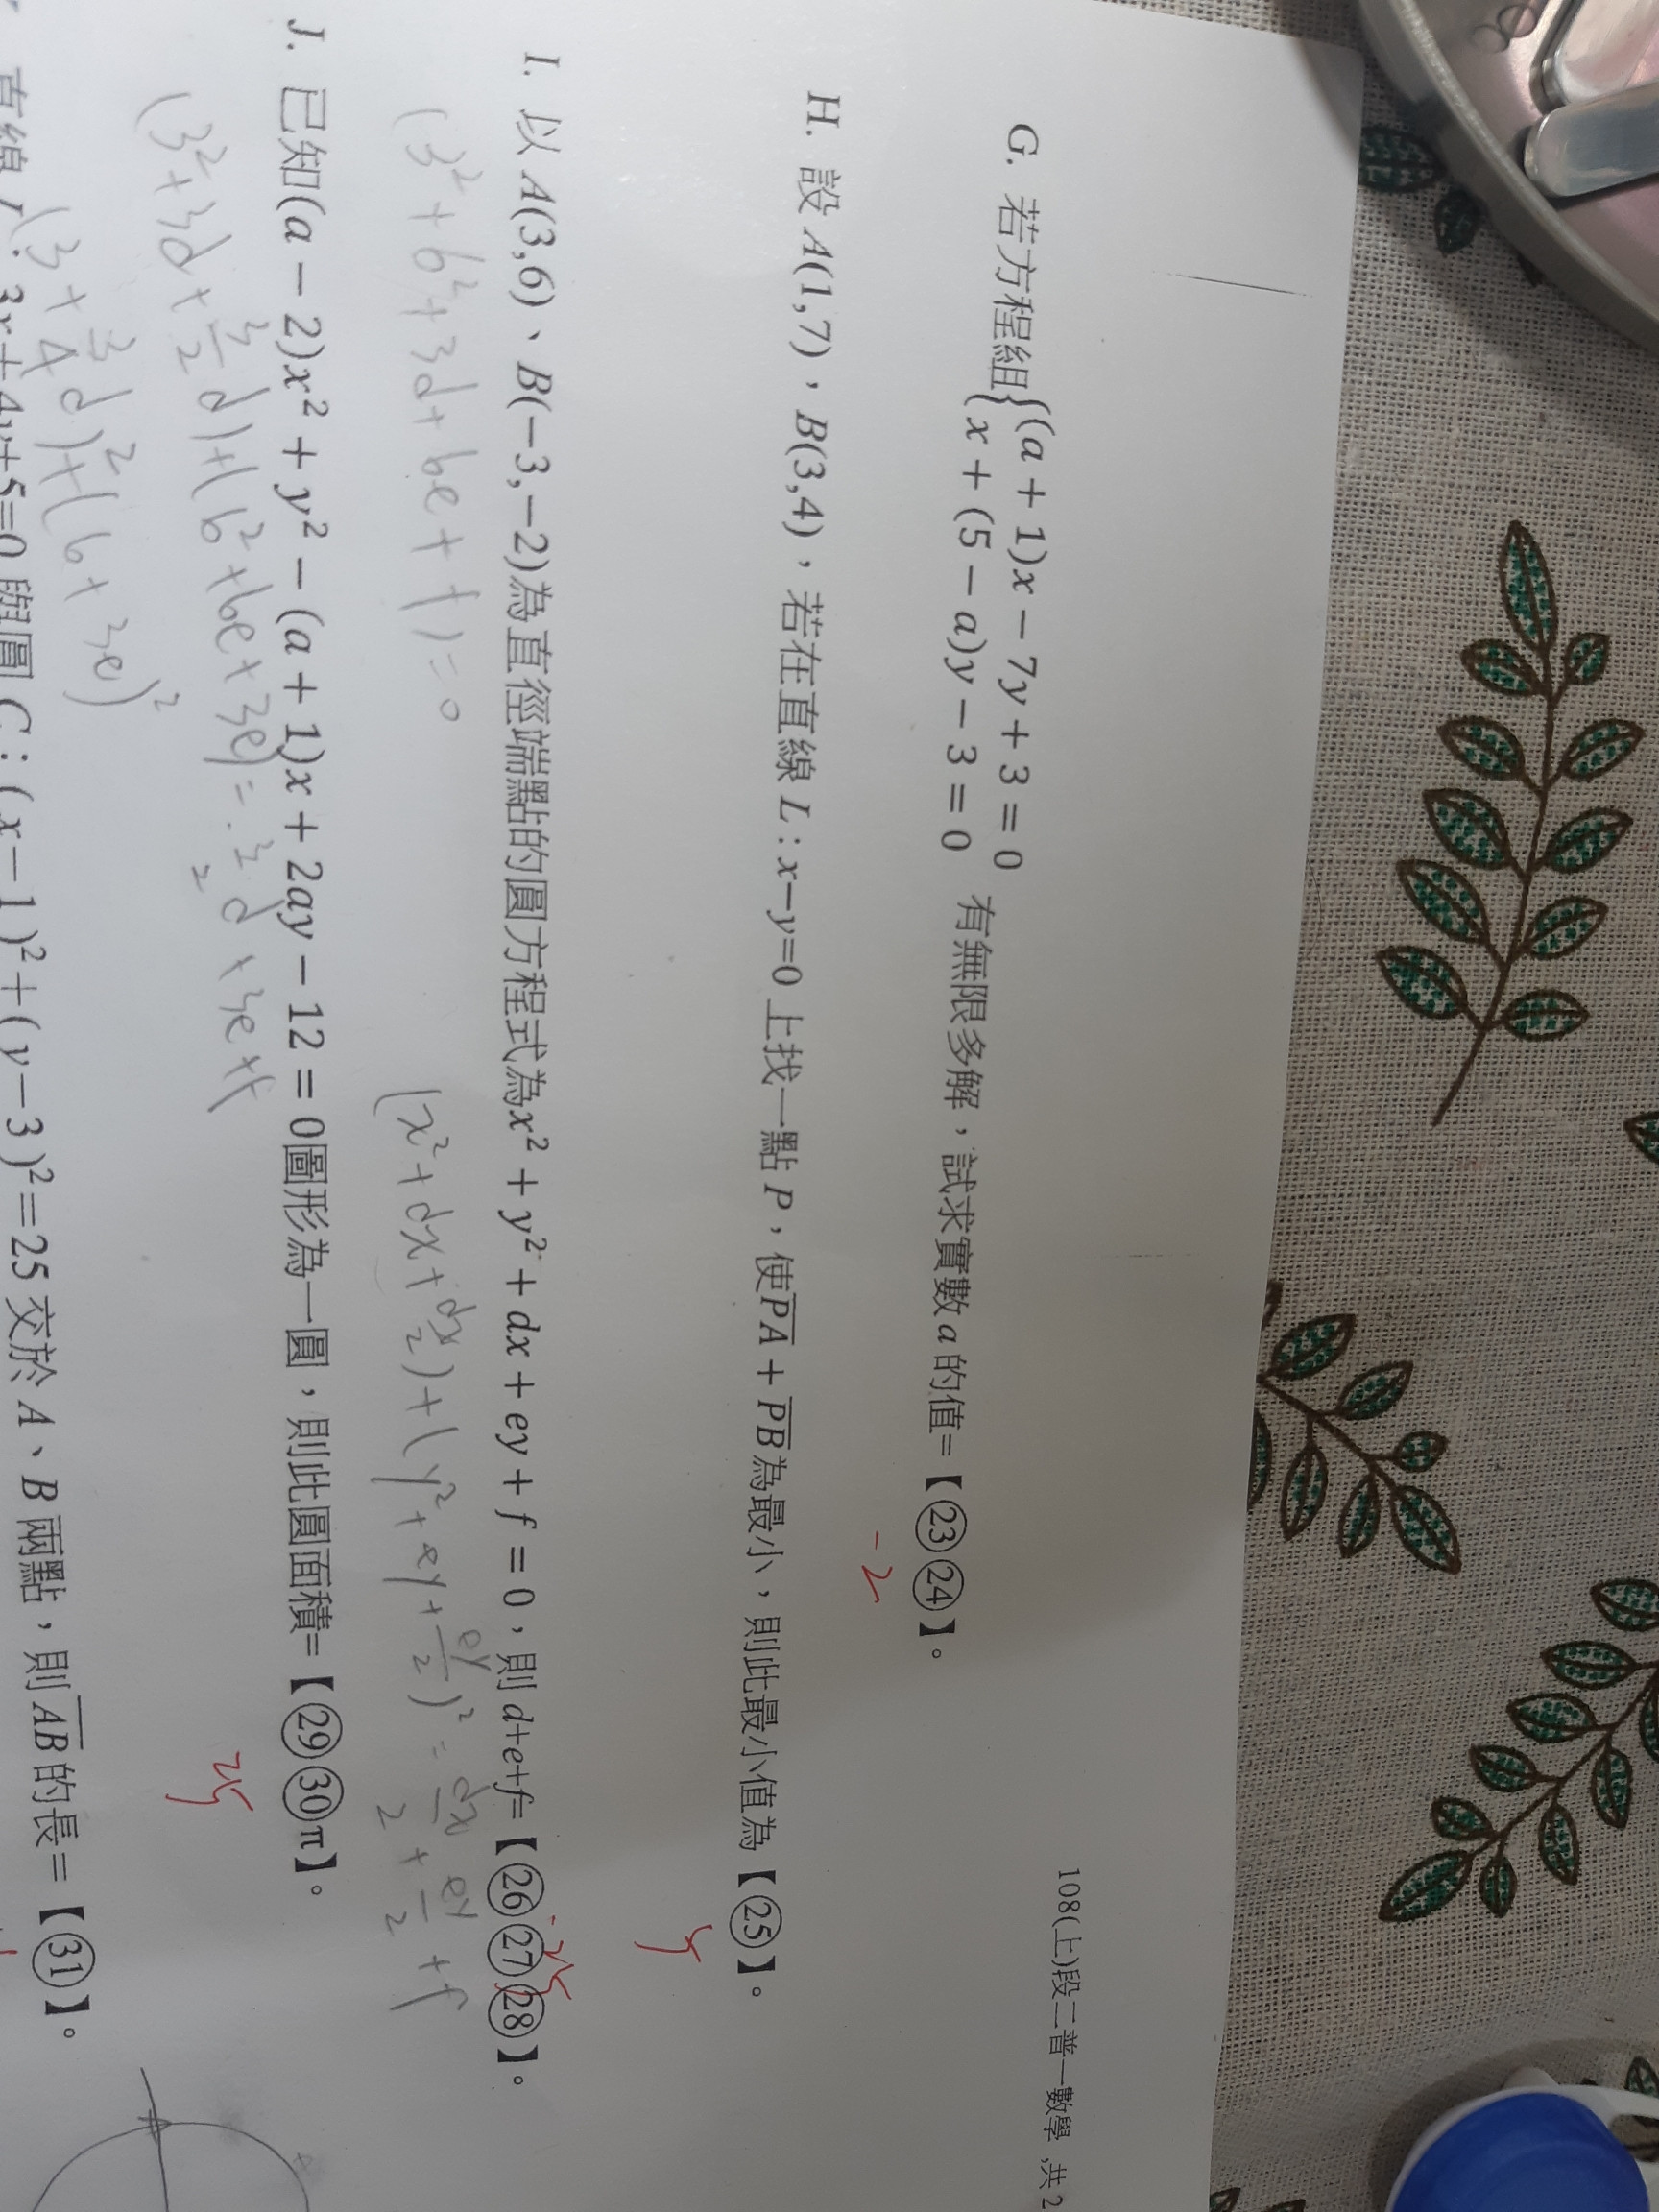 108(上)段二普一數學 ,共 2
G. 若方程組{(a + 1)x − 7y + 3 = 0
x + (5 − a)y − 3 = 0 有無限多解，試求實數 a 的值=【㉓㉔】。
-2
H. 設 A(1,7)，B(3,4)，若在直線 L : x−y=0 上找一點 P，使P̅A̅ + P̅B̅為最小，則此最小值為【㉕】。
5
I. 以 A(3,6)、B(−3,−2)為直徑端點的圓方程式為x² + y² + dx + ey + f = 0，則 d+e+f=【㉖㉗㉘】。
-25
(3²+6²+3d+6e+f)=0
(x²+dx+dx/2)+(y²+ey+ey/2)²=dx/2+ey/2+f
J. 已知(a − 2)x² + y² − (a + 1)x + 2ay − 12 = 0圖形為一圓，則此圓面積=【㉙㉚π】。
25
(3²+3d+3/2d)+(6²+6e+3e)=3/2d+3e+f
(3+3/4d)²+(6+3e)²
直線 L: 3x+4y+5=0 與圓 C : ( x−1 )²+( y−3 )²=25 交於 A、B 兩點，則 A̅B̅ 的長=【㉛】。